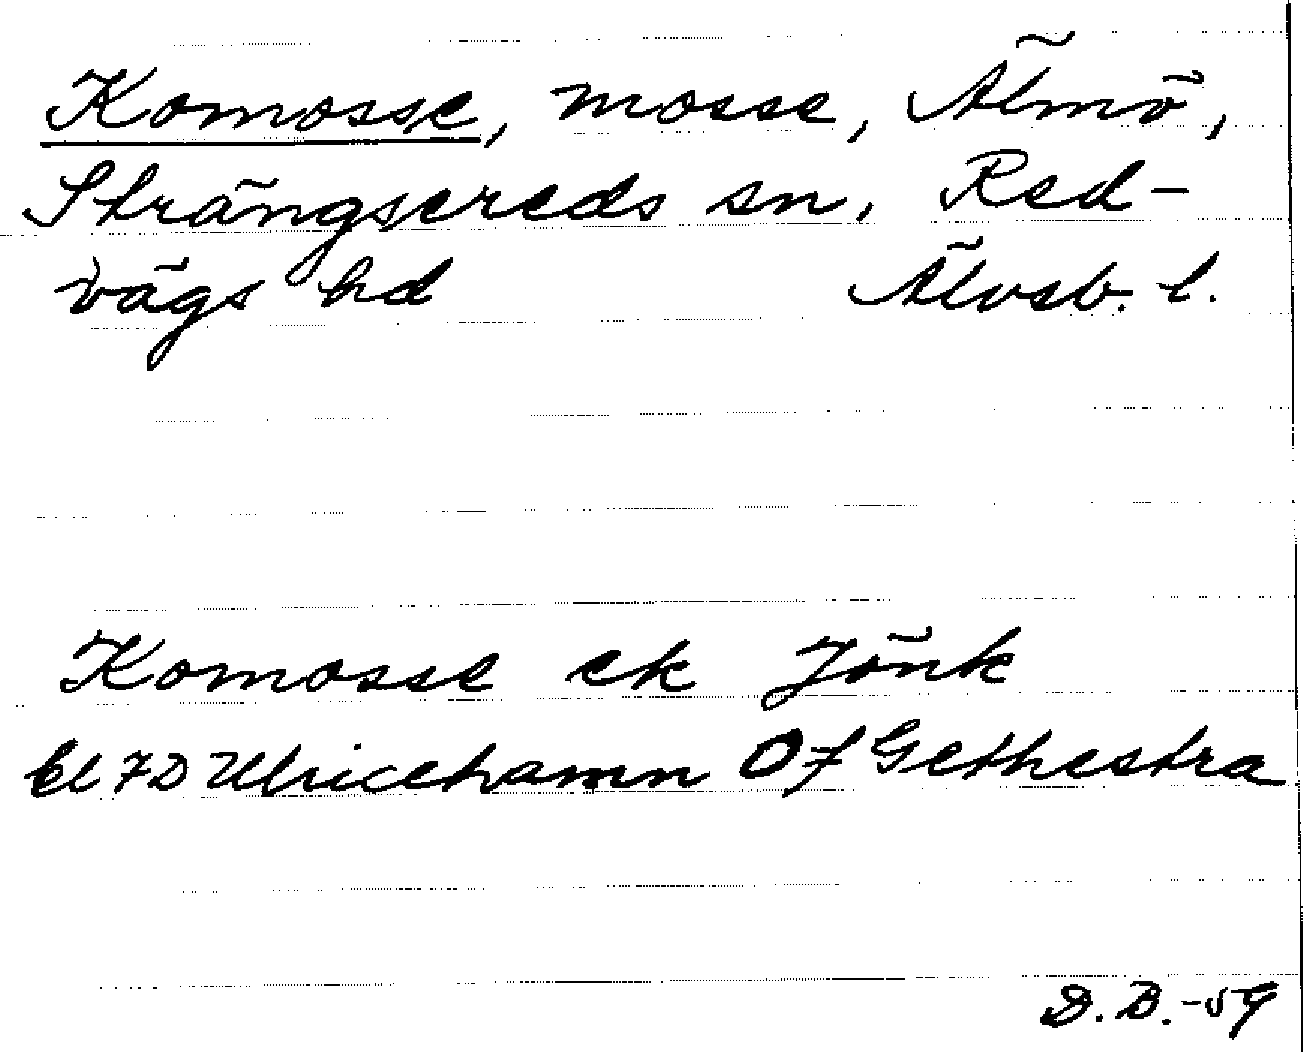 Komosse, mosse, Älmö,
Strängsereds sn, Red-
vägs hd Älvsb. l.
Komosse ek Jönk
bl 7D Ulricehamn Of Gethestra
D.B.-59